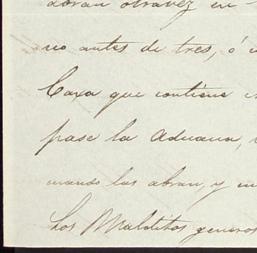 abran otravez en
no antes de tres, ó
Caxa que contiene
pase la Aduana,
mando las abran, y en
Los Malditos generos